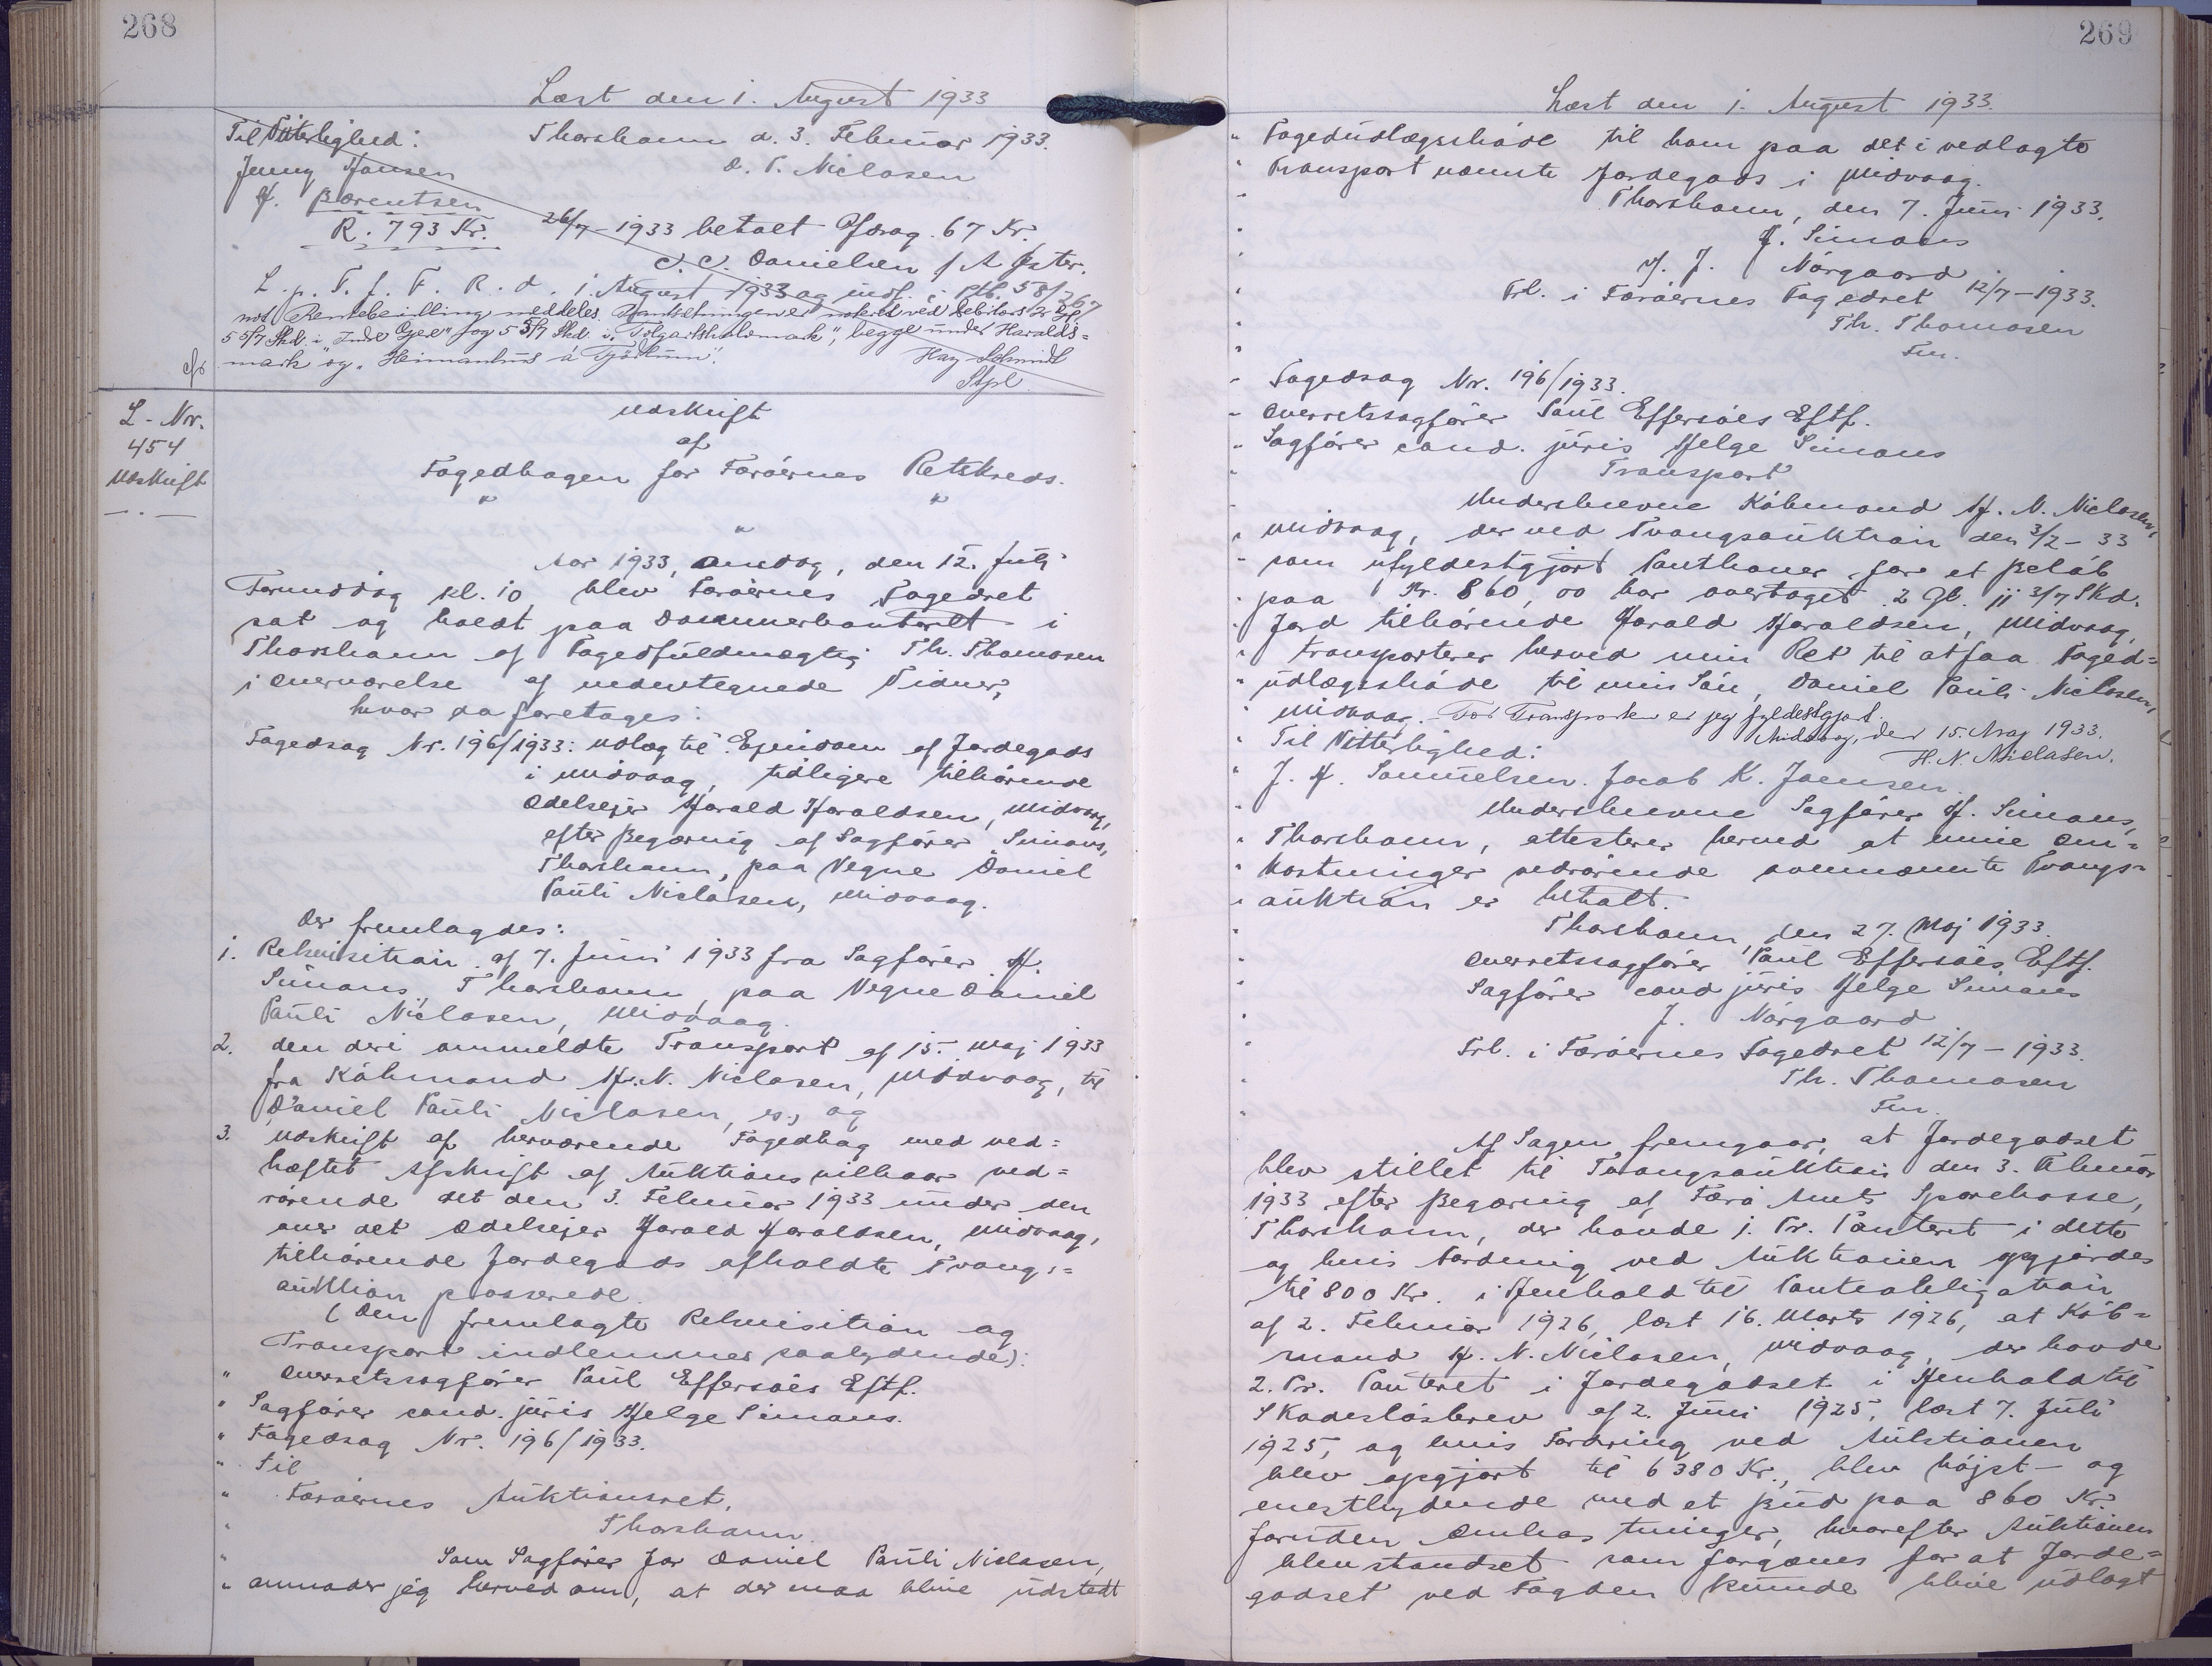 268
Læst den 1. August 1933
Til Vitterlighed: Thorshavn d. 3. Februar 1933.
Jenny Hansen D. P. Niclasen
H. Berentsen
R. 793 Kr. 26/7-1933 betalt Afdrag 67 Kr.
J. C. Danielsen f/ A Øster.
L. p. T. f. F. R. d. 1. August 1933 og indf. i Ptb. 58/267
mod Rentebevilling meddeles. Pantsætningen er noteret ved Debitors 2 Gl.
5 5/7 Skd. i "Indre Gjerd" og 5 5/7 Skd. i "Tolgartshulemark", begge under Haralds=
mark" og "Heimanhus á Tjødlum".
Hay-Schmidt
Stpl.
L-Nr.
454
Udskrift
Udskrift
af
Fogedbogen for Færøernes Retskreds.
" "
"
Aar 1933, Onsdag, den 12. Juli
Formiddag kl. 10 blev Færøernes Fogedret
sat og holdt paa Dommerkontoret i
Thorshavn af Fogedfuldmægtig Th. Thomasen
i Overværelse af undertegnede Vidner,
hvor da foretages:
Fogedsag Nr. 196/1933: Udlæg til Ejendom af Jordegods
i Midvaag, tidligere tilhørende
Odelsejer Harald Haraldsen, Midvaag,
efter Begæring af Sagfører Simans,
Thorshavn, paa Vegne Daniel
Pauli Niclasen, Midvaag.
Der fremlagdes:
1. Rekvisition af 7. Juni 1933 fra Sagfører H.
Simans, Thorshavn, paa Vegne Daniel
Pauli Niclasen, Midvaag.
2. den deri ommeldte Transport af 15. Maj 1933
fra Købmand H. N. Niclasen, Midvaag, til
Daniel Pauli Niclasen, s., og
3. Udskrift af herværende Fogedbog med ved=
hæftet Afskrift af Auktionsvilkaar ved=
rørende det den 3. Februar 1933 under den
over det Odelsejer Harald Haraldsen, Midvaag,
tilhørende Jordegods afholdte Tvangs=
auktion passerede.
(Den fremlagte Rekvisition og
Transport indlemmes saalydende):
" Overretssagfører Paul Effersøes Eftf.
" Sagfører cand. juris Helge Simans.
" Fogedsag Nr. 196/1933.
" Til
" Færøernes Auktionsret,
" Thorshavn.
" Som Sagfører for Daniel Pauli Niclasen,
" anmoder jeg herved om, at der maa blive udstedt
269
Læst den 1. August 1933.
" Fogedudlægsskøde til ham paa det i vedlagte
" Transport nævnte Jordegods i Midvaag.
" Thorshavn, den 7. Juni 1933.
" H. Simans
" v/ J. Nørgaard
" Frl. i Færøernes Fogedret 12/7-1933.
Th. Thomasen
" Fm.
" Fogedsag Nr. 196/1933.
" Overretssagfører Paul Effersøes Eftf.
" Sagfører cand. juris Helge Simans
" Transport
" Underskrevne Købmand H. N. Niclasen,
" Midvaag, der ved Tvangsauktion den 3/2-33
" som ufyldestgjort Panthaver for et Beløb
" paa Kr. 860,00 har overtaget 2 Gl. 11 3/7 Skd.
" Jord tilhørende Harald Haraldsen, Midvaag,
" transporterer herved min Ret til at faa Foged=
" udlægsskøde til min Søn, Daniel Pauli Niclasen,
" Midvaag. For Transporten er jeg fyldestgjort.
Midvaag, den 15. Maj 1933.
" Til Vitterlighed: H. N. Niclasen.
" J. H. Samuelsen. Jacob K. Joensen.
" Underskrevne Sagfører H. Simans,
" Thorshavn, attesterer herved at mine Om=
" kostninger vedrørende ovennævnte Tvangs=
" auktion er betalt.
" Thorshavn, den 27. Maj 1933.
" Overretssagfører Paul Effersøes Eftf.
" Sagfører cand juris Helge Simans
" J. Nørgaard
" Frl. i Færøernes Fogedret 12/7-1933.
" Th. Thomasen
" Fm.
Af Sagen fremgaar, at Jordegodset
blev stillet til Tvangsauktion den 3. Februar
1933 efter Begæring af Færø Amts Sparekasse,
Thorshavn, der havde 1. Pr. Panteret i dette
og hvis Fordring ved Auktionen opgjordes
til 800 Kr. i Henhold til Panteobligation
af 2. Februar 1926, læst 16. Marts 1926, at Køb=
mand H. N. Niclasen, Midvaag, der havde
2. Pr. Panteret i Jordegodset i Henhold til
Skadesløsbrev af 2. Juni 1925, læst 7. Juli
1925, og hvis Fordring ved Auktionen
blev opgjort til 6380 Kr., blev højst- og
enestbydende med et Bud paa 860 Kr.
foruden Omkostninger, hvorefter Auktionen
blev standset som forgæves for at Jorde=
godset ved Fogden kunde blive udlagt